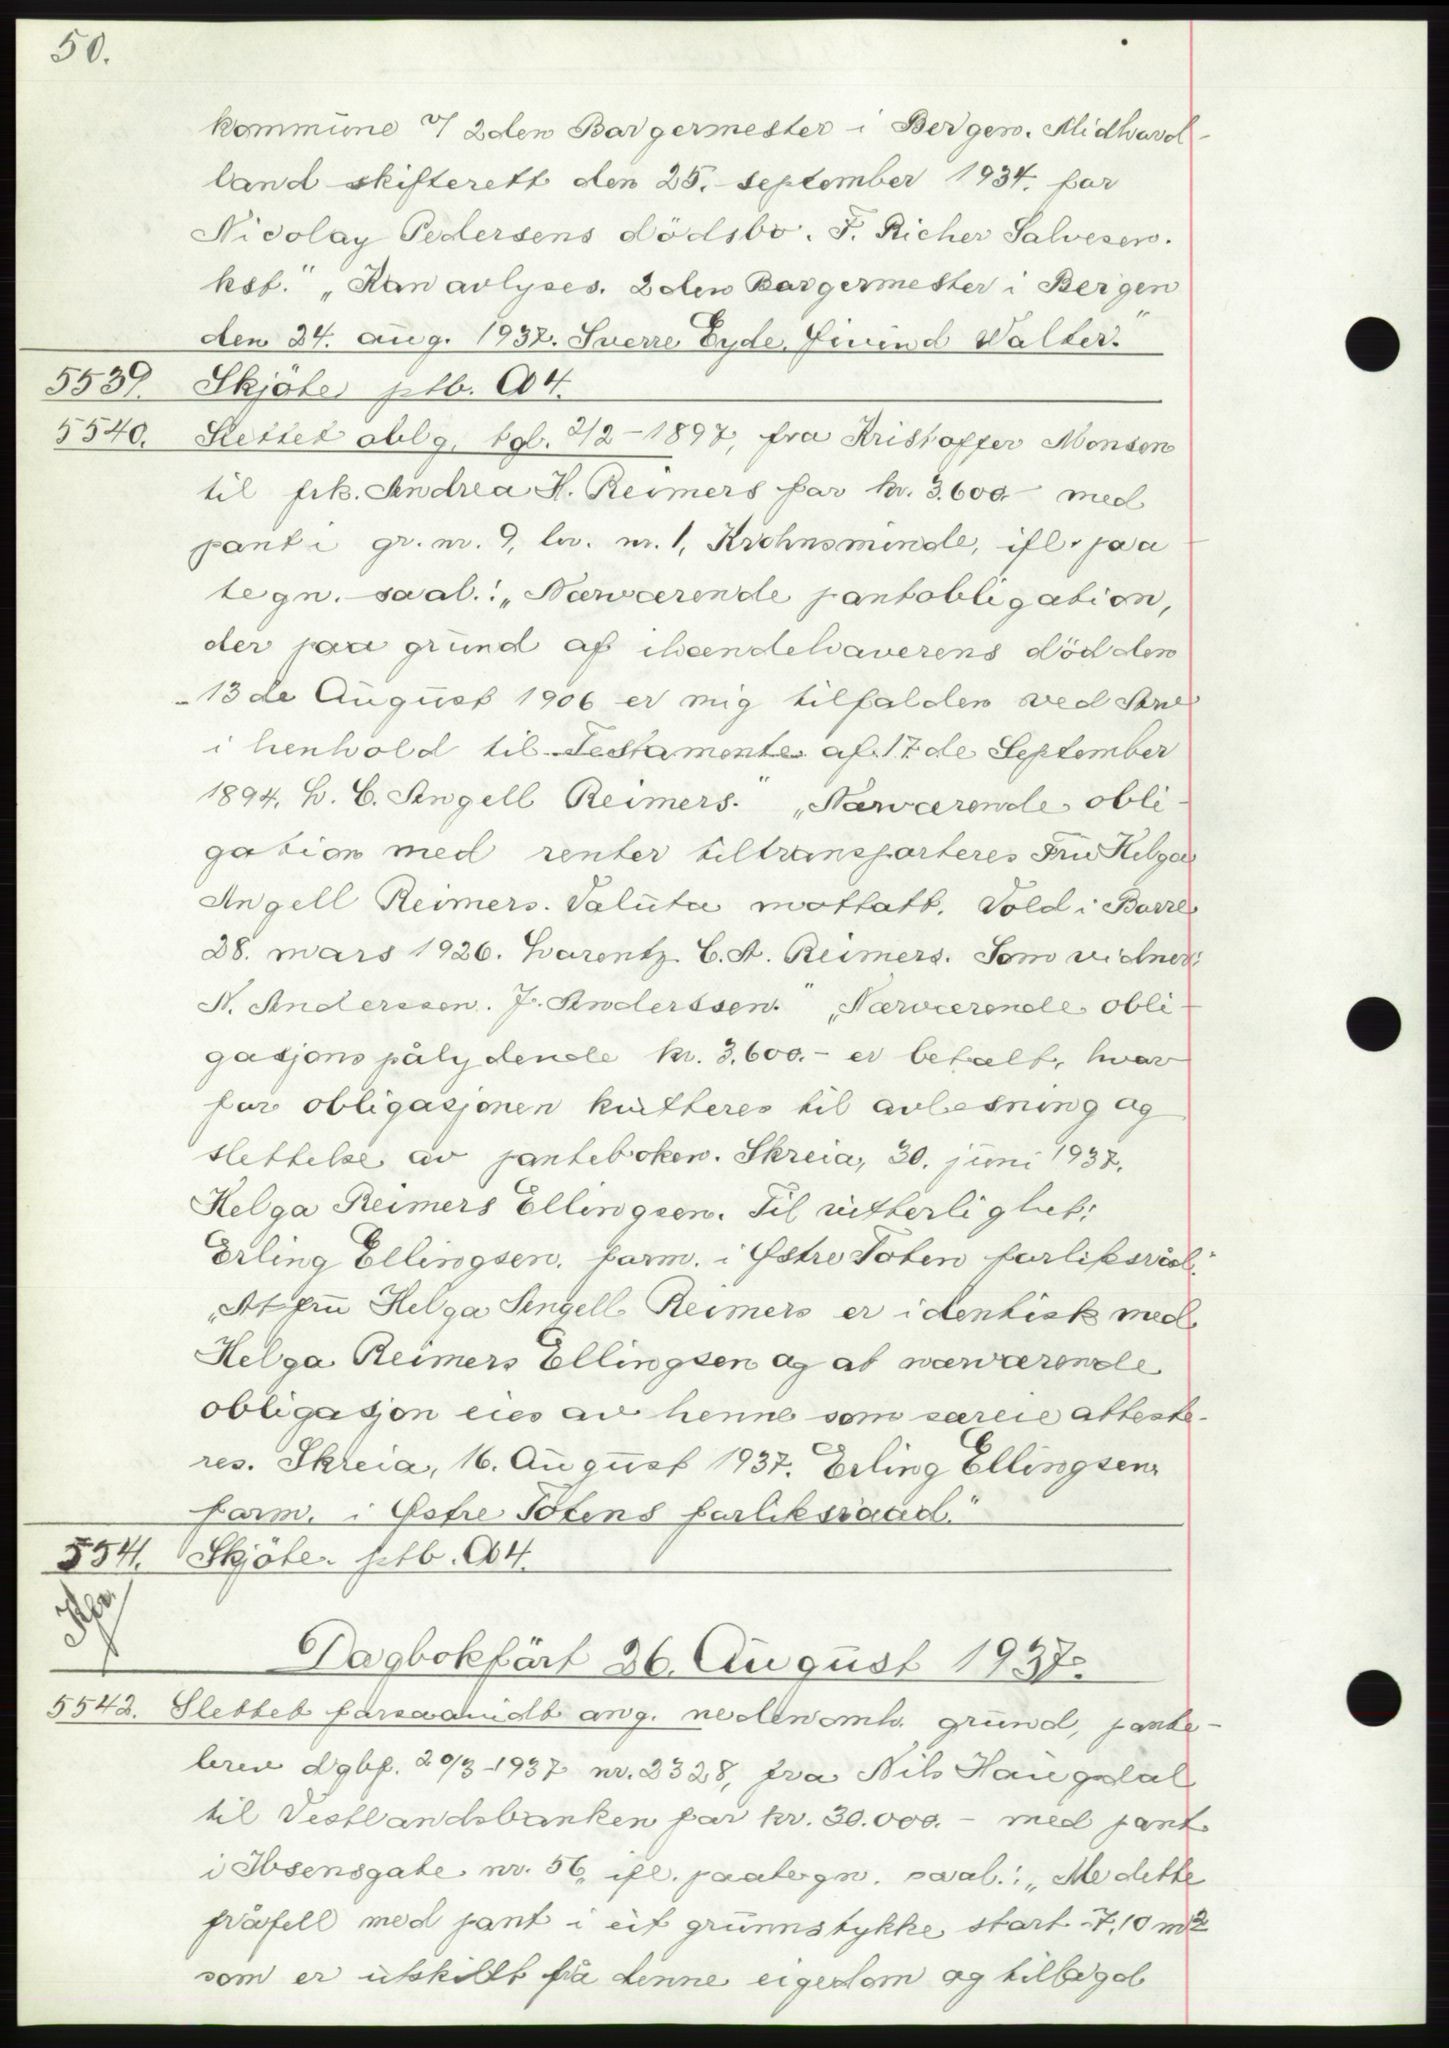 50.
kommune v/ 2den Borgermester i Bergen. Midhord-
land skifterett den 25. september 1934. for
Nicolay Pedersens dödsbo. F. Richer Salvesen.
kst." „Kan avlyses. 2den Borgermester i Bergen
den 24. aug. 1937. Sverre Eyde. Eivind Walter."
5539. Skjöte ptb. A 4.
5540. Slettet oblg. tgl. 2/2-1897, fra Kristoffer Monsen
til frk. Andrea H. Reimers for kr. 3.600.- med
pant i gr. nr. 9, br. nr. 1, Krohnsminde, ifl. paa
tegn. saal.: „Nærværende pantobligation,
der paa grund af ihændehaverens död den
13de August 1906 er mig tilfalden ved Arv
i henhold til Testamente af 17de September
1894. L. C. Angell Reimers." „Nærværende obli-
gation med renter tiltransporteres Fru Helga
Angell Reimers. Valuta mottatt. Vold i Borre
28. mars 1926. Lorentz C. A. Reimers. Som vidner:
N. Anderssen. J. Anderssen." „Nærværende obli-
gasjons pålydende kr. 3.600.- er betalt, hvor
for obligasjonen kvitteres til avlesning og
slettelse av panteboken. Skreia, 30. juni 1937.
Helga Reimers Ellingsen. Til vitterlighet:
Erling Ellingsen. form. i Østre Toten forliksråd."
„At fru Helga Angell Reimers er identisk med
Helga Reimers Ellingsen og at nærværende
obligasjon eies av henne som særeie atteste-
res. Skreia, 16. August 1937. Erling Ellingsen
form. i Østre Totens forliksraad."
5541. Skjöte ptb. A 4.
Dagbokfört 26. August 1937.
5542. Slettet forsaavidt ang. nedenomh. grund, pante-
brev dgbf. 20/3-1937 nr. 2328, fra Nils Haugsdal
til Vestlandsbanken for kr. 30.000.- med pant
i Ibsensgate nr. 56, ifl. paategn. saal.: „Me dette
fråfell med pant i eit grunnstykke stort 7,10 m2
som er utskilt frå denne eigedom og tillagd